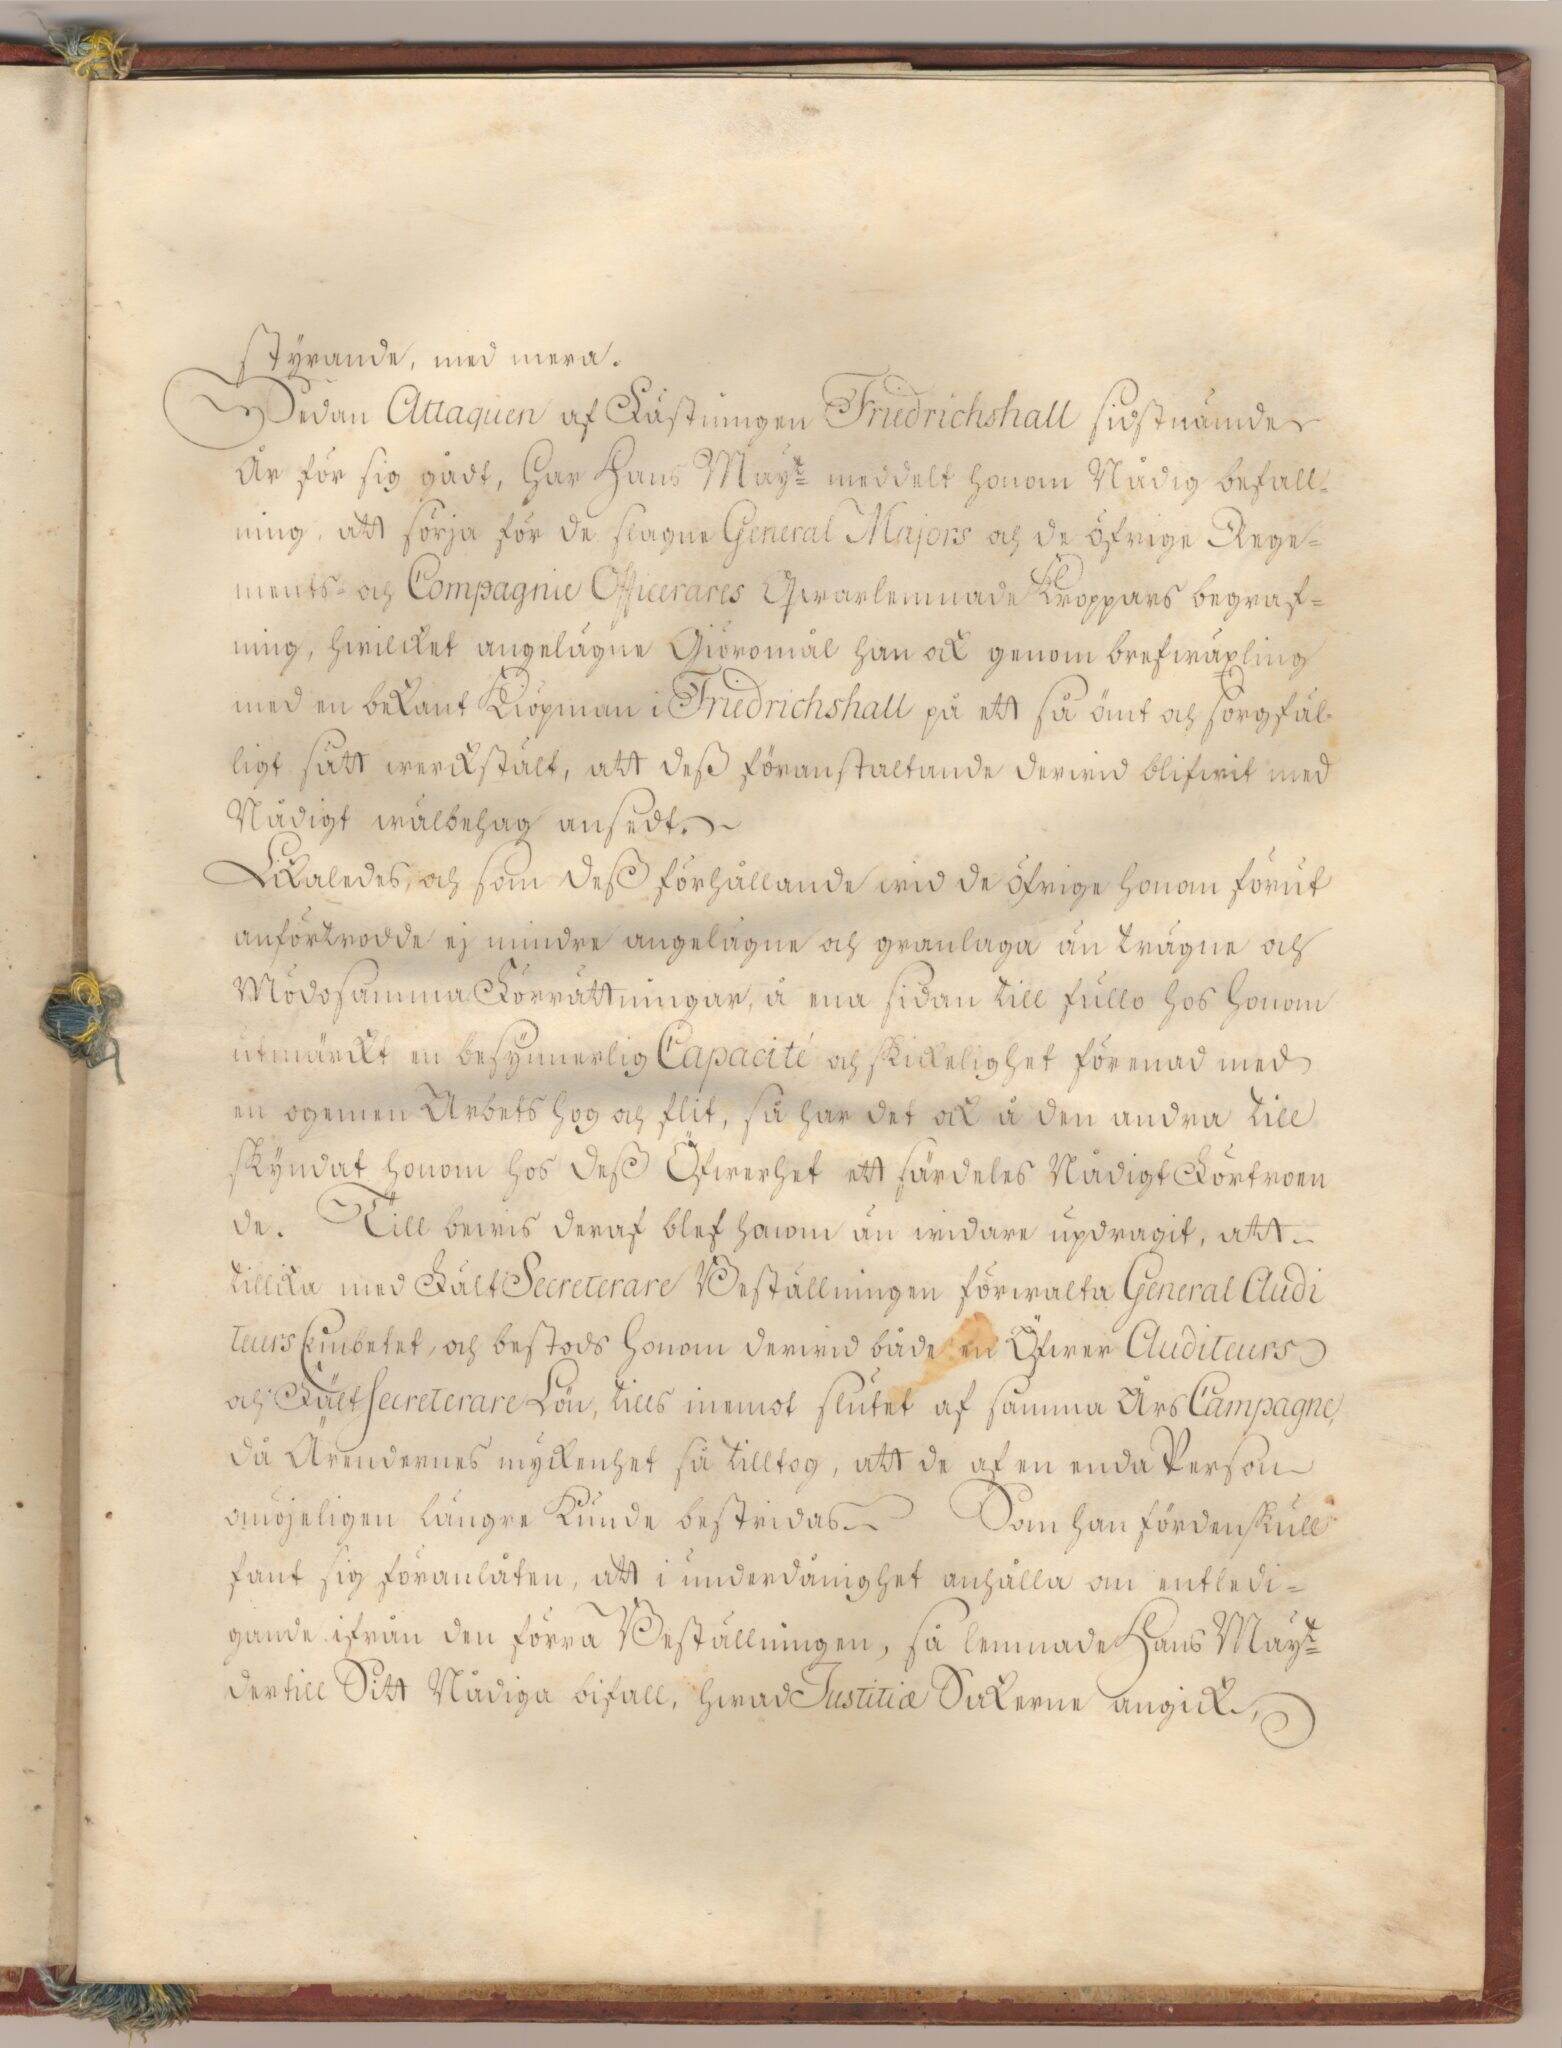 styrande, med mera.
Sedan Attaquen af Fästningen Friedrichshall sidstnämde
År för sig gådt, har Hans Mayt meddelt honom Nådig befall-
ning, att sörja för de slagne General Majors och de öfrige Rege-
ments- och Compagnie Officerares Qwarlemnade Kroppars begraf-
ning, hwilcket angelägne Giöromål han ock genom brefwäxling
med en bekant Kiöpman i Friedrichshall på ett så ömt och sorgfäl-
ligt sätt werckstält, att deß föranstaltande derwid blifwit med
Nådigt wälbehag ansedt.
Likaledes, och som deß förhållande wid de öfrige honom förut
anförtrodde ej mindre angelägne och granlaga än trägne och
Mödosamma Förrättningar, å ena sidan till fullo hos honom
utmärckt en besynnerlig Capacité och skickelighet förenad med
en ogemen Arbets hog och flit, så har det ock å den andra till
skyndat honom hos deß Öfwerhet ett särdeles Nådigt Förtroen
de. Till bewis deraf blef honom än widare updragit, att
tillicka med Fält Secreterare Beställningen förwalta General Audi
teurs Embetet, och bestods honom derwid både en Öfwer Auditeurs
och Fält Secreterare Lön, tills inemot slutet af samma Års Campagne,
då Ärendernes myckenhet så tilltog, att de af en enda Person
omöjeligen längre Kunde bestridas. Som han fördenskull
fant sig föranlåten, att i underdånighet anhålla om entledi-
gande ifrån den förra Beställningen, så lemnade Hans Mayt
dertill Sitt Nådiga bifall, hwad Justitiæ Sakerne angick,